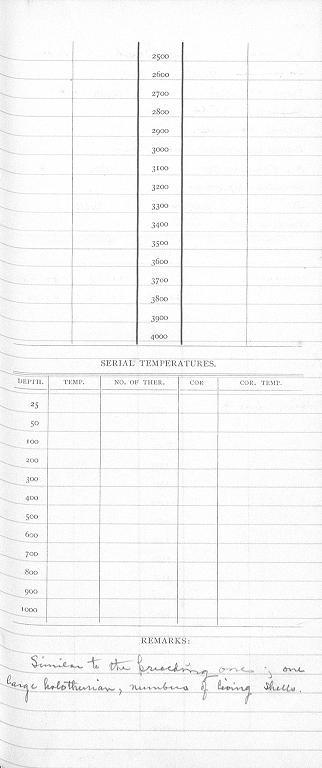 2500
2600
2700
2800
2900
3000
3100
3200
3300
3400
3500
3600
3700
3800
3900
4000
SERIAL TEMPERATURES.
DEPTH. TEMP. NO. OF THER. COR COR. TEMP.
25
50
100
200
300
400
500
600
700
800
900
1000
REMARKS:
Similar to the preceding one; one
large holothurian, numbers of living shells.